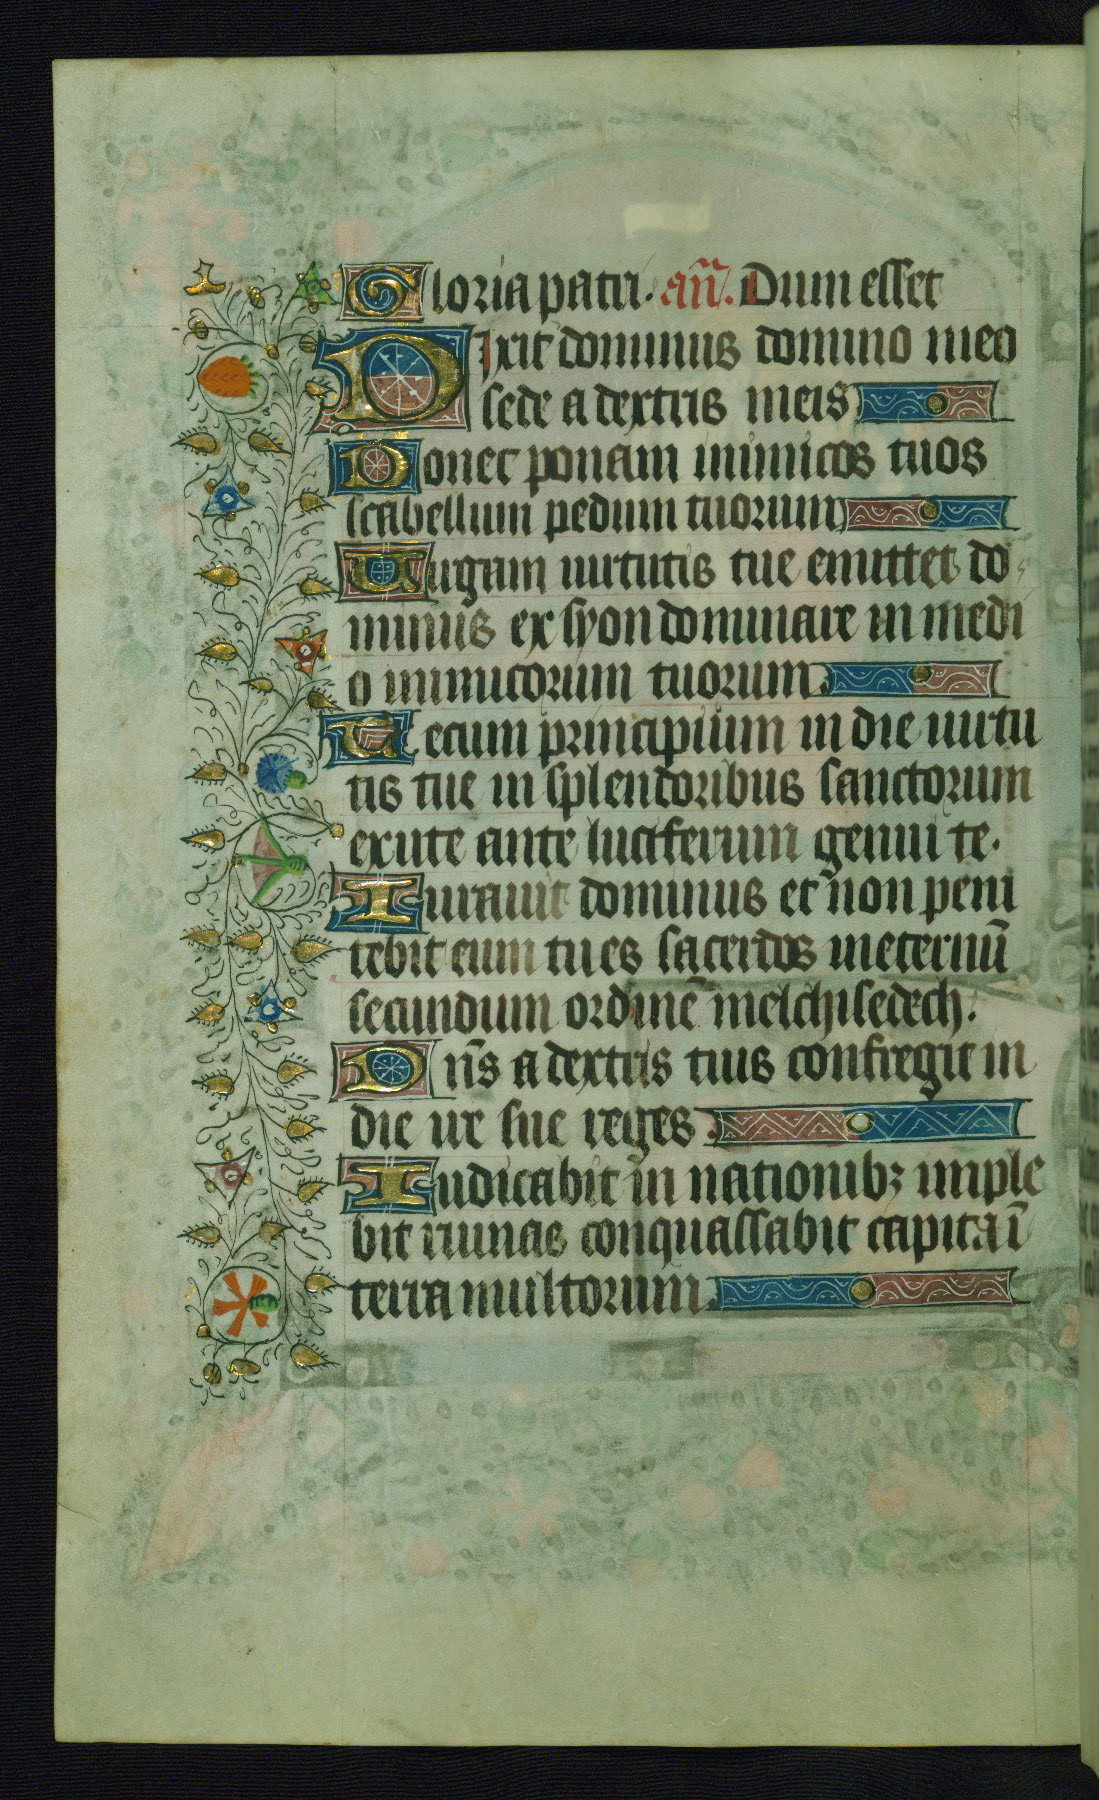 Gloria patri. añ. Dum esset
Dixit dominus domino meo
sede a dextris meis
Donec ponam inimicos tuos
scabellum pedum tuorum
Uirgam uirtutis tue emittet do
minus ex syon dominare in medi
o inimicorum tuorum.
Tecum principium in die uirtu
tis tue in splendoribus sanctorum
ex utero ante luciferum genui te.
Iurauit dominus et non peni
tebit eum tu es sacerdos in eternū
secundum ordinē melchisedech.
Dn̄s a dextris tuis confregit in
die ire sue reges.
Iudicabit in nationibꝫ imple
bit ruinas conquassabit capita ī
terra multorum.